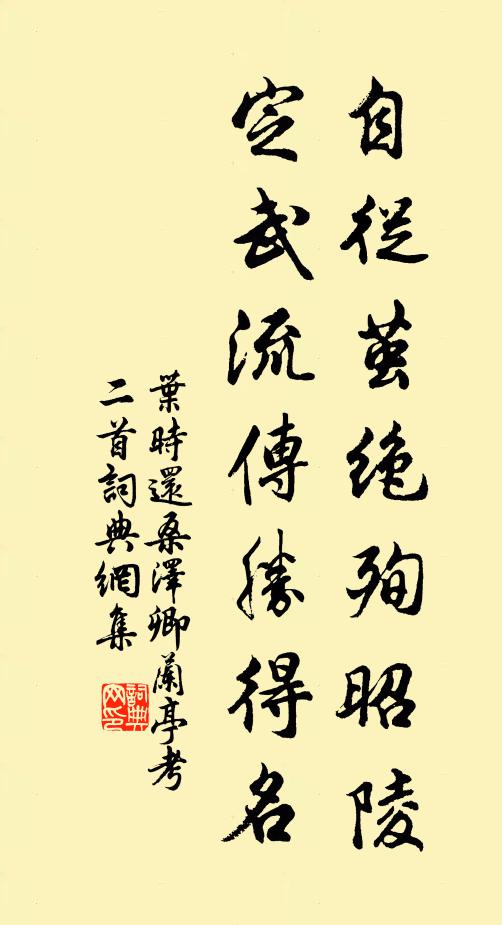 自從茧絶殉昭陵
定武流傳勝得名
葉時還桑澤卿蘭亭考
二首詞典網集
詞典
网印